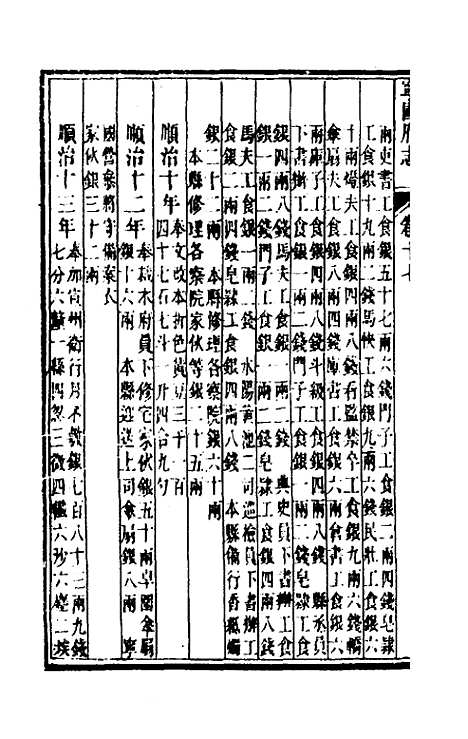 寧國府志 卷十七
兩吏書工食銀五十七兩六錢門子工食銀二兩四錢皂隸
工食銀十九兩二錢馬快工食銀九兩六錢民壯工食銀六
十兩燈夫工食銀四兩八錢看監禁卒工食銀九兩六錢轎
傘扇夫工食銀四兩四錢庫書工食銀六兩倉書工食銀六
兩庫子工食銀四兩八錢斗級工食銀四兩八錢 縣丞員
下書辦工食銀一兩二錢門子工食銀一兩二錢皂隸工食
銀四兩八錢馬夫工食銀一兩二錢 典史員下書辦工食
銀一兩二錢門子工食銀一兩二錢皂隸工食銀四兩八錢
馬夫工食銀一兩二錢 水陽黃池二司巡檢員下書辦工
食銀二兩四錢皂隸工食銀四兩八錢 本縣備行香燭
銀二十二兩 本縣修理各察院銀六十兩
本縣修理各察院家伙等銀二十五兩
順治十年奉文改本折色黃豆三十一百
四十七石七斗一升四合九勺
順治十二年奉裁本府員下修宅家伙銀五十兩皂圍傘扇
銀十六兩 本縣迎送上司傘扇銀八兩 寧
國營參將守備案衣
家伙銀三十二兩
順治十三年奉加宣州衛行月不敷銀七百八十三兩九錢
七分六釐一縣四忽三微四纖六沙六塵二埃